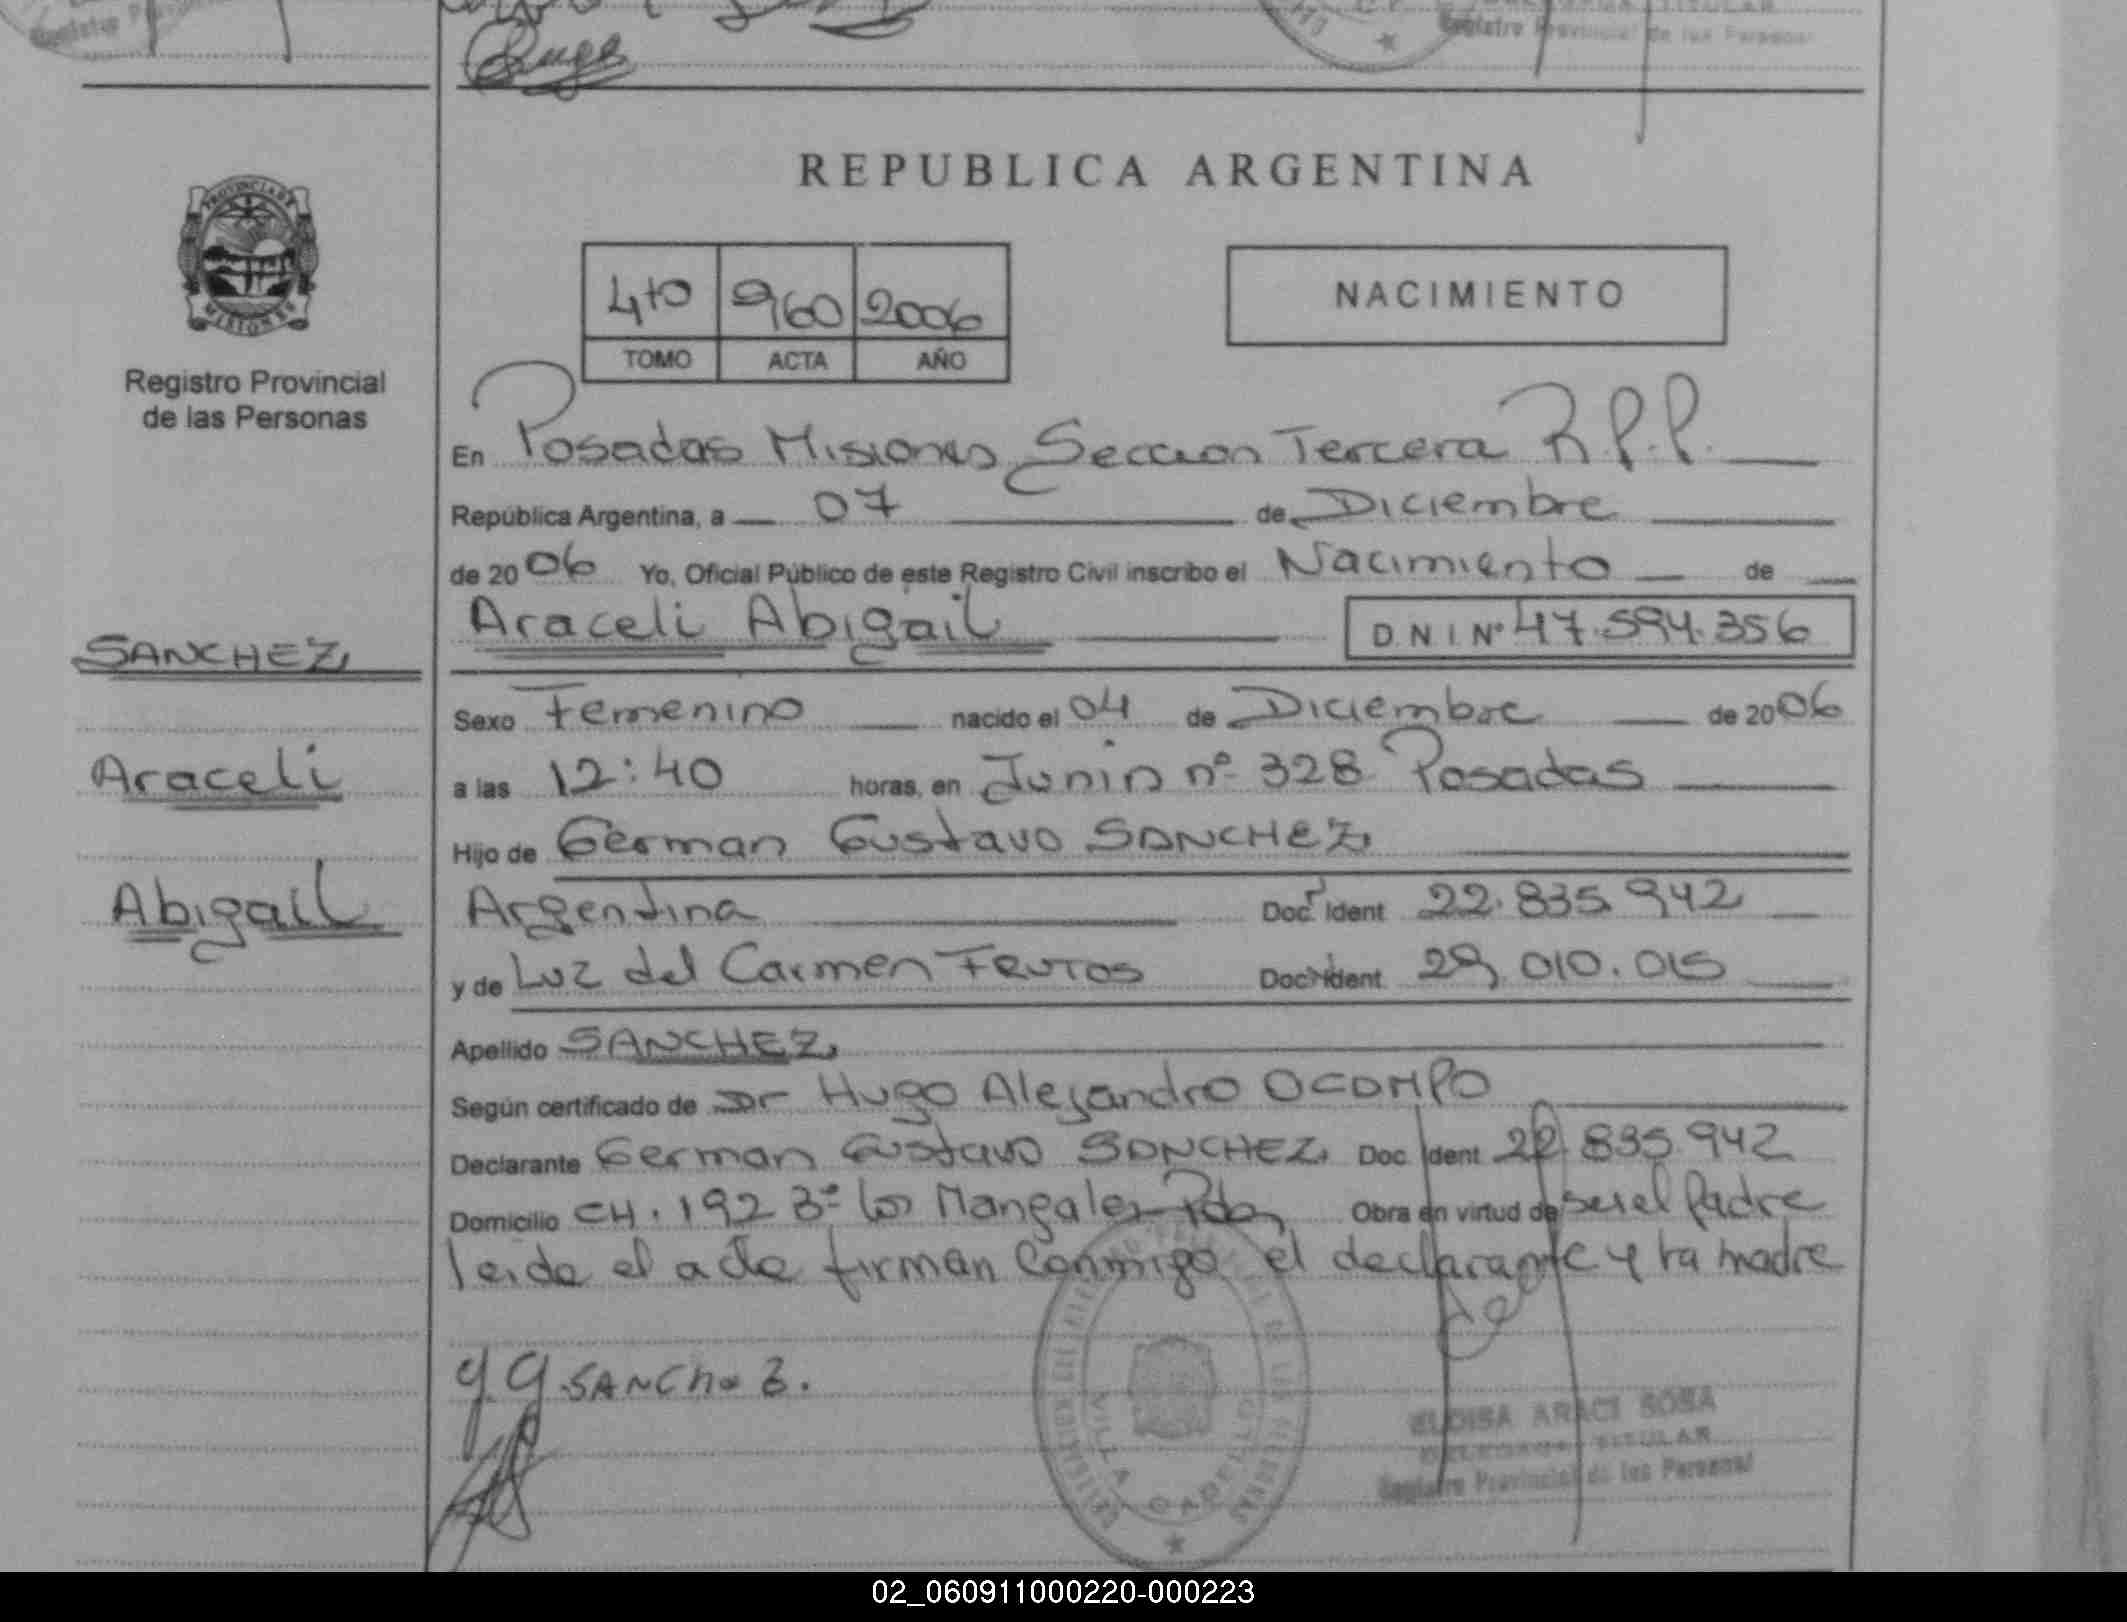 Registro Provincial de las Personas
REPUBLICA ARGENTINA
PROVINCIA DE
MISIONES
960 2006
TOMO ACTA AÑO
NACIMIENTO
Registro Provincial
de las Personas
En Posadas Misiones Seccion Tercera R.P.P.
República Argentina, a 07 de Diciembre
de 2006 Yo, Oficial Público de este Registro Civil inscribo el Nacimiento de
Araceli Abigail D.N.I Nº 47.594.356
SANCHEZ
Sexo Femenino nacido el 04 de Diciembre de 2006
Araceli
a las 12:40 horas, en Junin nº 328 Posadas
Hijo de German Gustavo SANCHEZ
Abigail
Argentina Doc. Ident 22.835.942
y de Luz del Carmen FRUTOS Doc Ident. 29.010.015
Apellido SANCHEZ
Según certificado de Dr Hugo Alejandro OCAMPO
Declarante German Gustavo SANCHEZ Doc Ident 22.835.942
Domicilio CH. 192 Bº los Mangales Pdas Obra en virtud de ser el Padre
leida el acta firman conmigo el declarante y la madre
G.G SANCHEZ.
VILLA CABELLO
ELOISA ARACI SOSA
DELEGADA TITULAR
Registro Provincial de las Personas
02_060911000220-000223